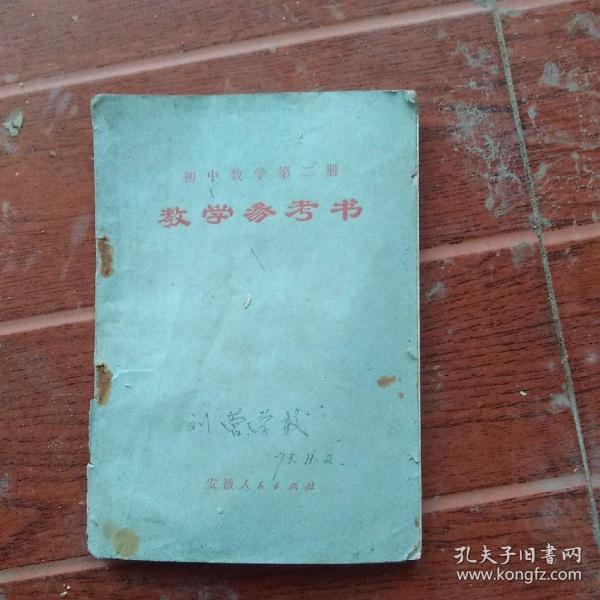 初中数学第二册
教学参考书
刘营学校
安徽人民出版社
孔夫子旧书网
www.kongfz.com